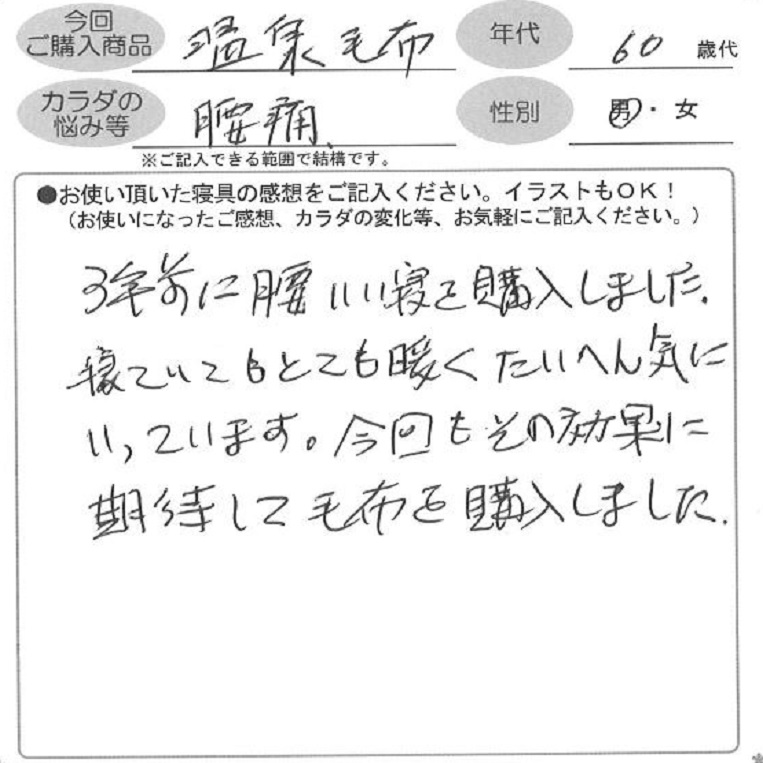 今回
ご購入商品 温泉毛布 年代 60 歳代
カラダの
悩み等 腰痛、 性別 男・女
※ご記入できる範囲で結構です。
●お使い頂いた寝具の感想をご記入ください。イラストもOK!
(お使いになったご感想、カラダの変化等、お気軽にご記入ください。)
3年前に腰いい寝を購入しました。
寝ていてもとても暖くたいへん気に
いっています。今回もその効果に
期待して毛布を購入しました。